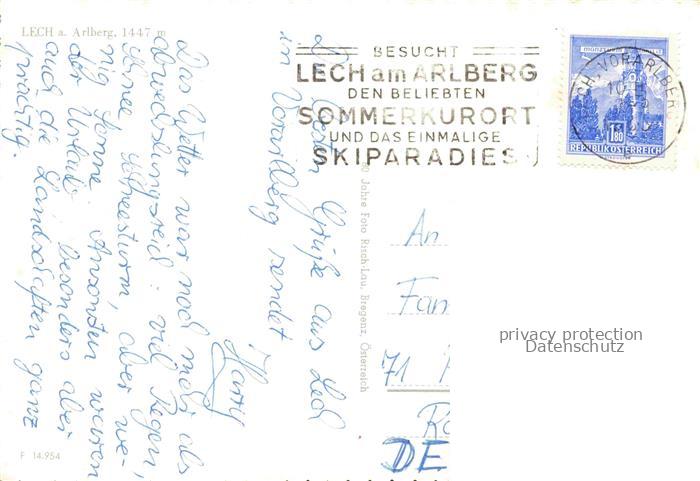 LECH a. Arlberg, 1447 m
BESUCHT
LECH am ARLBERG
DEN BELIEBTEN
SOMMERKURORT
UND DAS EINMALIGE
SKIPARADIES
REPUBLIK ÖSTERREICH
1.80
Die besten Grüße aus Lech
in Vorarlberg sendet
Harry
Das Wetter war noch mehr als
abwechslungsreich: viel Regen,
Schnee, Schneesturm, aber we-
nig Sonne. Ansonsten waren
der Urlaub besonders aber
auch die Landschaften ganz
prächtig.
Jahre Foto Risch-Lau, Bregenz, Österreich
An
Fam
71
DE
privacy protection
Datenschutz
F 14.954